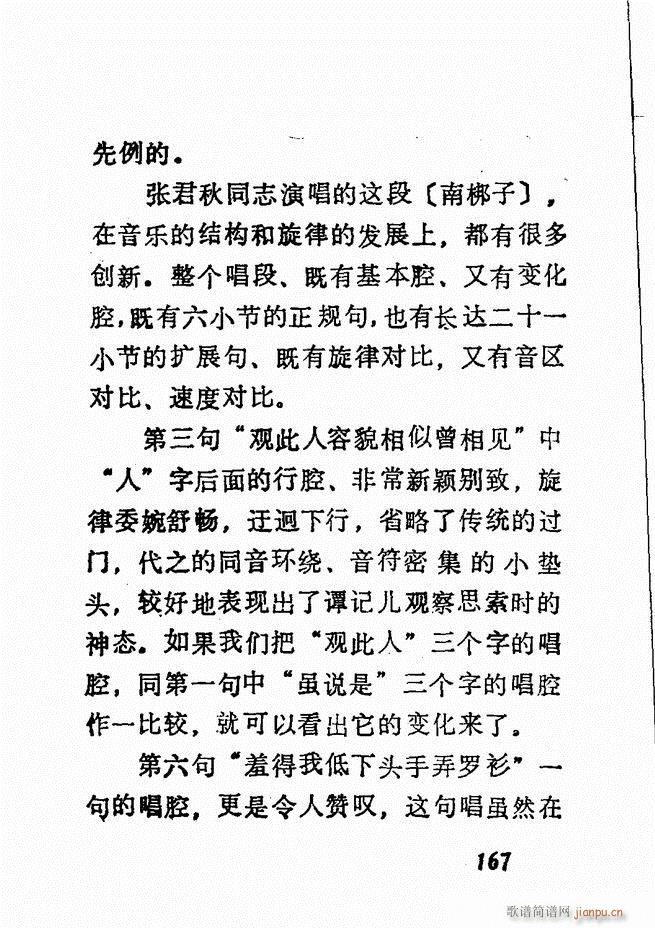 先例的。
张君秋同志演唱的这段〔南梆子〕，
在音乐的结构和旋律的发展上，都有很多
创新。整个唱段、既有基本腔、又有变化
腔，既有六小节的正规句，也有长达二十一
小节的扩展句、既有旋律对比，又有音区
对比、速度对比。
第三句“观此人容貌相似曾相见”中
“人”字后面的行腔、非常新颖别致，旋
律委婉舒畅，迂迴下行，省略了传统的过
门，代之的同音环绕、音符密集的小垫
头，较好地表现出了谭记儿观察思索时的
神态。如果我们把“观此人”三个字的唱
腔，同第一句中“虽说是”三个字的唱腔
作一比较，就可以看出它的变化来了。
第六句“羞得我低下头手弄罗衫”一
句的唱腔，更是令人赞叹，这句唱虽然在
167
歌谱简谱网 jianpu.cn